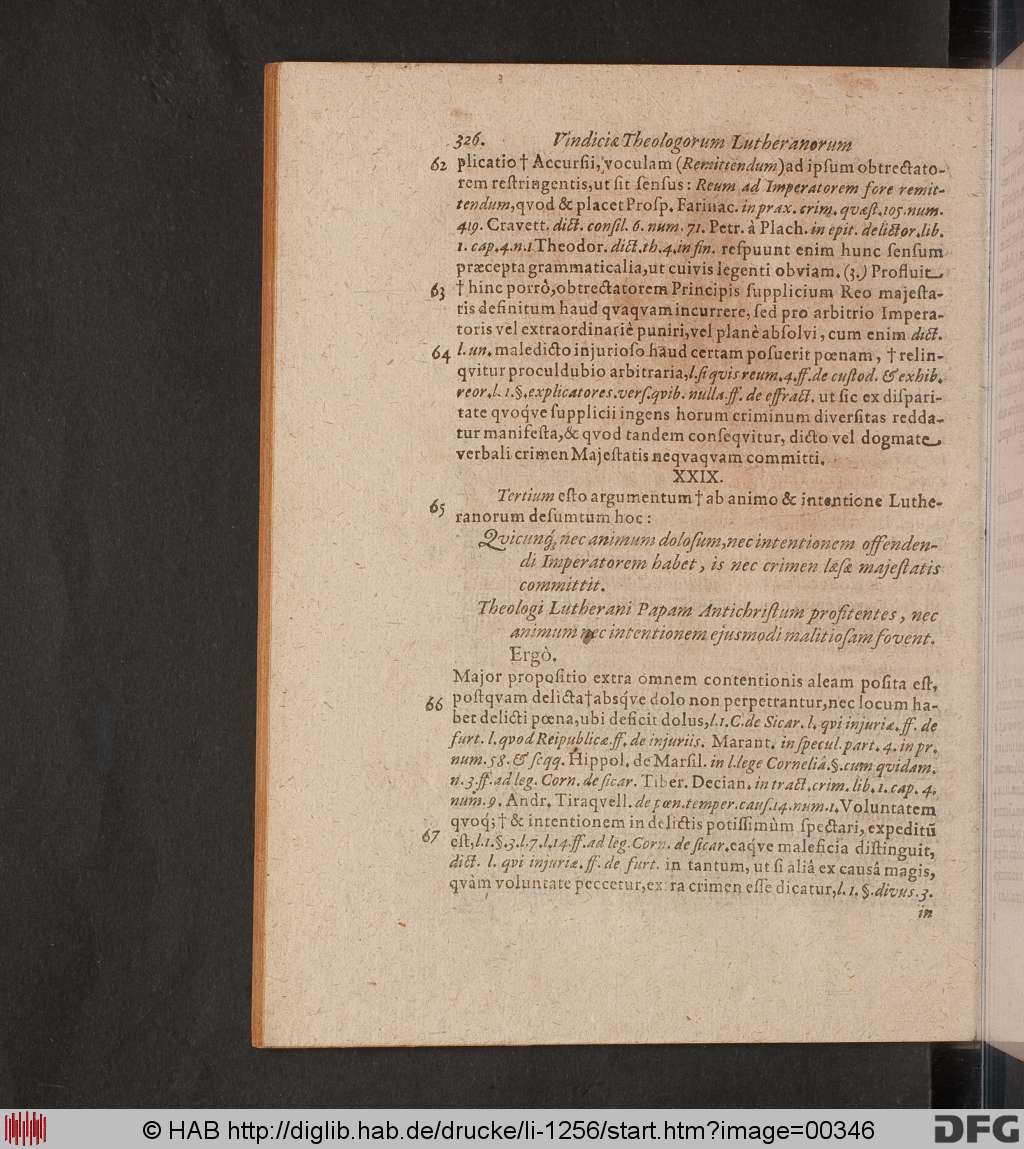 326. Vindiciæ Theologorum Lutheranorum
62 plicatio † Accursii, voculam (Remittendum) ad ipsum obtrectato-
rem restringentis, ut sit sensus: Reum ad Imperatorem fore remit-
tendum, qvod & placet Prosp. Farinac. in prax. crim. qvæst. 105. num.
419. Cravett. dict. consil. 6. num. 71. Petr. à Plach. in epit. delictor. lib.
1. cap. 4. n. 1 Theodor. dict. th. 4. in fin. respuunt enim hunc sensum
præcepta grammaticalia, ut cuivis legenti obviam. (3.) Profluit
63 † hinc porrò, obtrectatorem Principis supplicium Reo majesta-
tis definitum haud qvaqvam incurrere, sed pro arbitrio Impera-
toris vel extraordinariè puniri, vel planè absolvi, cum enim dict.
64 l. un. maledicto injurioso haud certam posuerit pœnam, † relin-
qvitur proculdubio arbitraria, l. si qvis reum. 4. ff. de custod. & exhib.
reor. l. 1. §. explicatores. vers. qvib. nulla. ff. de effract. ut sic ex dispari-
tate qvoqve supplicii ingens horum criminum diversitas redda-
tur manifesta, & qvod tandem conseqvitur, dicto vel dogmate
verbali crimen Majestatis neqvaqvam committi.
XXIX.
65 Tertium esto argumentum † ab animo & intentione Luthe-
ranorum desumtum hoc:
Qvicunq; nec animum dolosum, nec intentionem offenden-
di Imperatorem habet, is nec crimen læsæ majestatis
committit.
Theologi Lutherani Papam Antichristum profitentes, nec
animum nec intentionem ejusmodi malitiosam fovent.
Ergò.
Major propositio extra omnem contentionis aleam posita est,
66 postqvam delicta † absq́ve dolo non perpetrantur, nec locum ha-
bet delicti pœna, ubi deficit dolus, l. 1. C. de Sicar. l. qvi injuriæ. ff. de
furt. l. qvod Reipublicæ. ff. de injuriis. Marant. in specul. part. 4. in pr.
num. 58. & seqq. Hippol. de Marsil. in l. lege Corneliâ. §. cum qvidam.
n. 3. ff. ad leg. Corn. de sicar. Tiber. Decian. in tract. crim. lib. 1. cap. 4.
num. 9. Andr. Tiraqvell. de pœn. temper. caus. 14. num. 1. Voluntatem
67 qvoq; † & intentionem in delictis potissimùm spectari, expeditũ
est, l. 1. §. 3. l. 7. l. 14. ff. ad leg. Corn. de sicar. eaqve maleficia distinguit,
dict. l. qvi injuriæ. ff. de furt. in tantum, ut si aliâ ex causâ magis,
qvàm voluntate peccetur, extra crimen esse dicatur, l. 1. §. divus. 3.
in
© HAB http://diglib.hab.de/drucke/li-1256/start.htm?image=00346
DFG